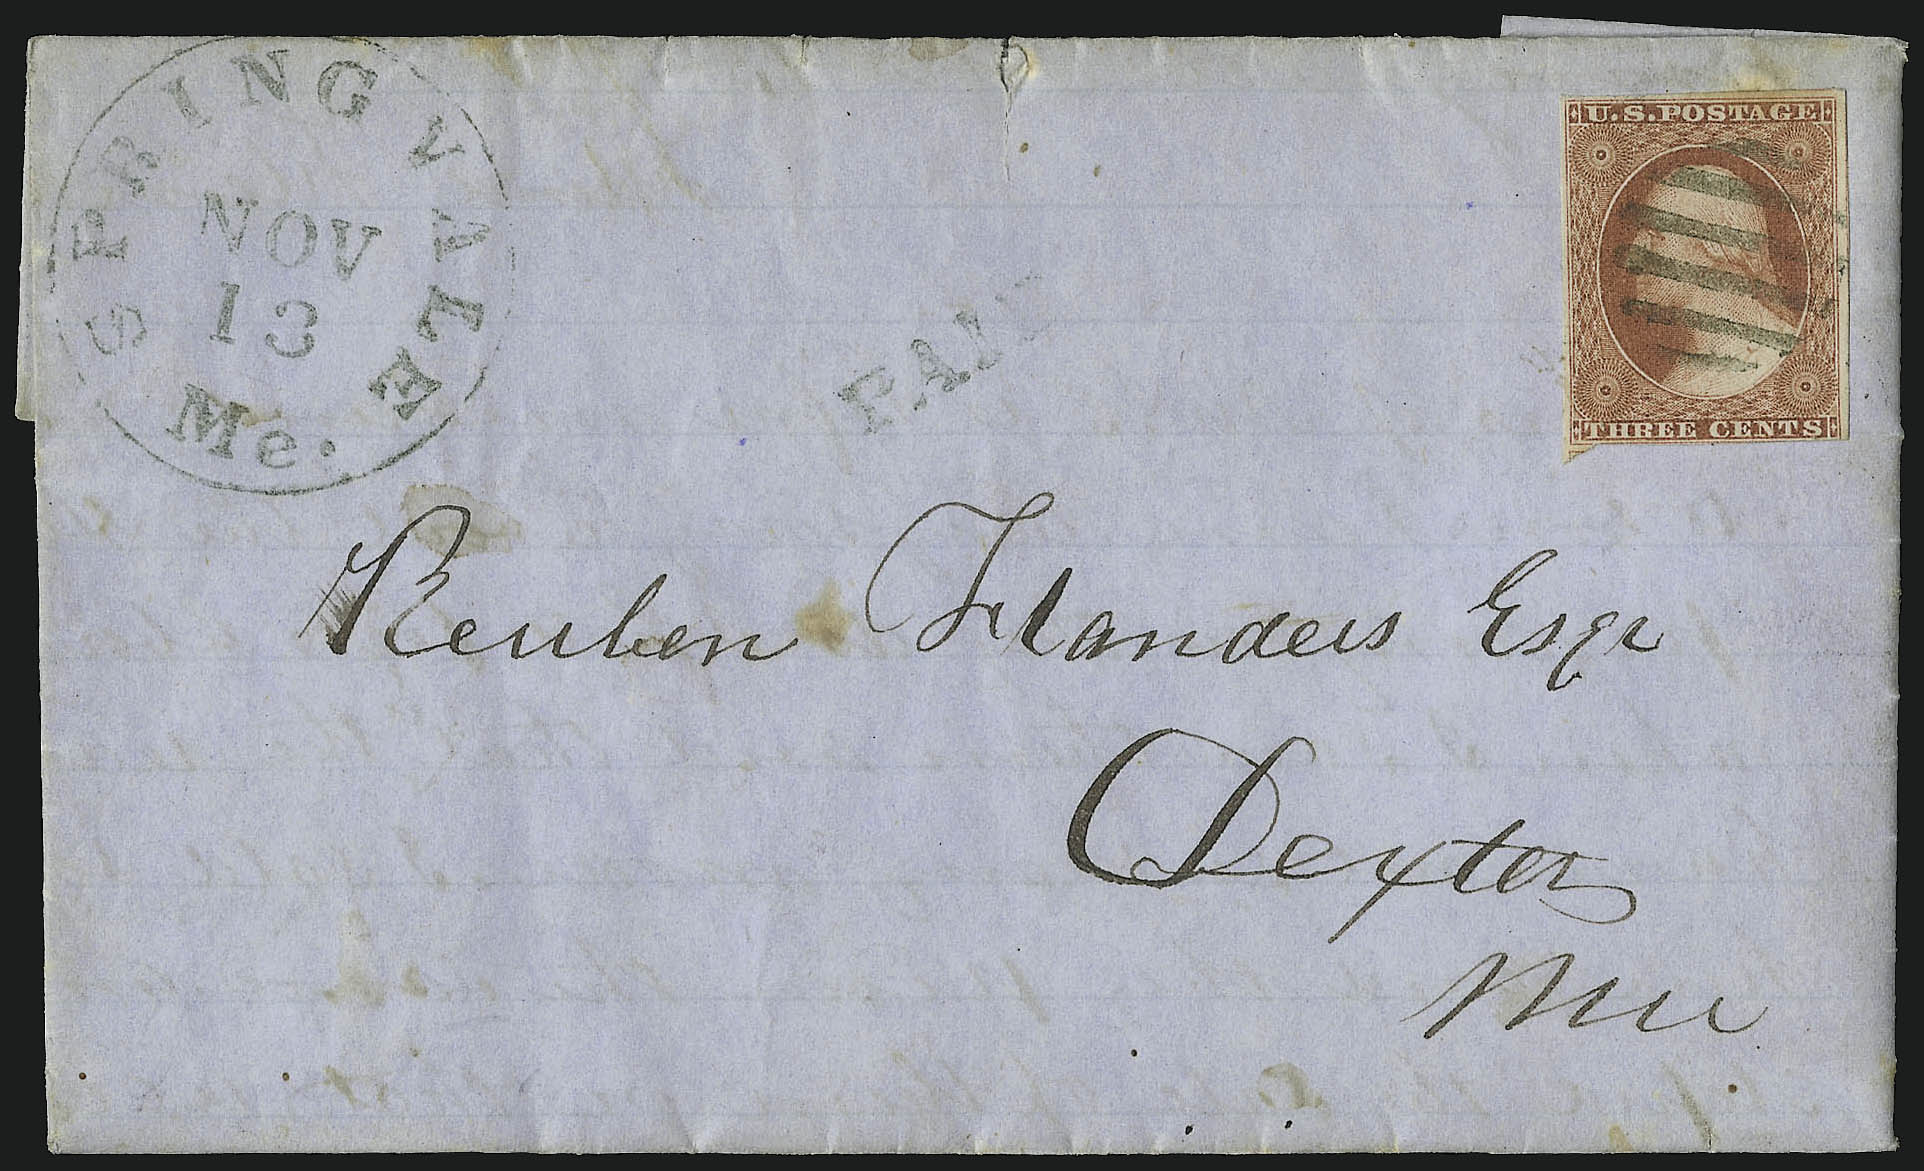 SPRINGVALE Me.
NOV
13
PAID
U.S. POSTAGE
THREE CENTS
Reuben Flanders Esqr
Dexter